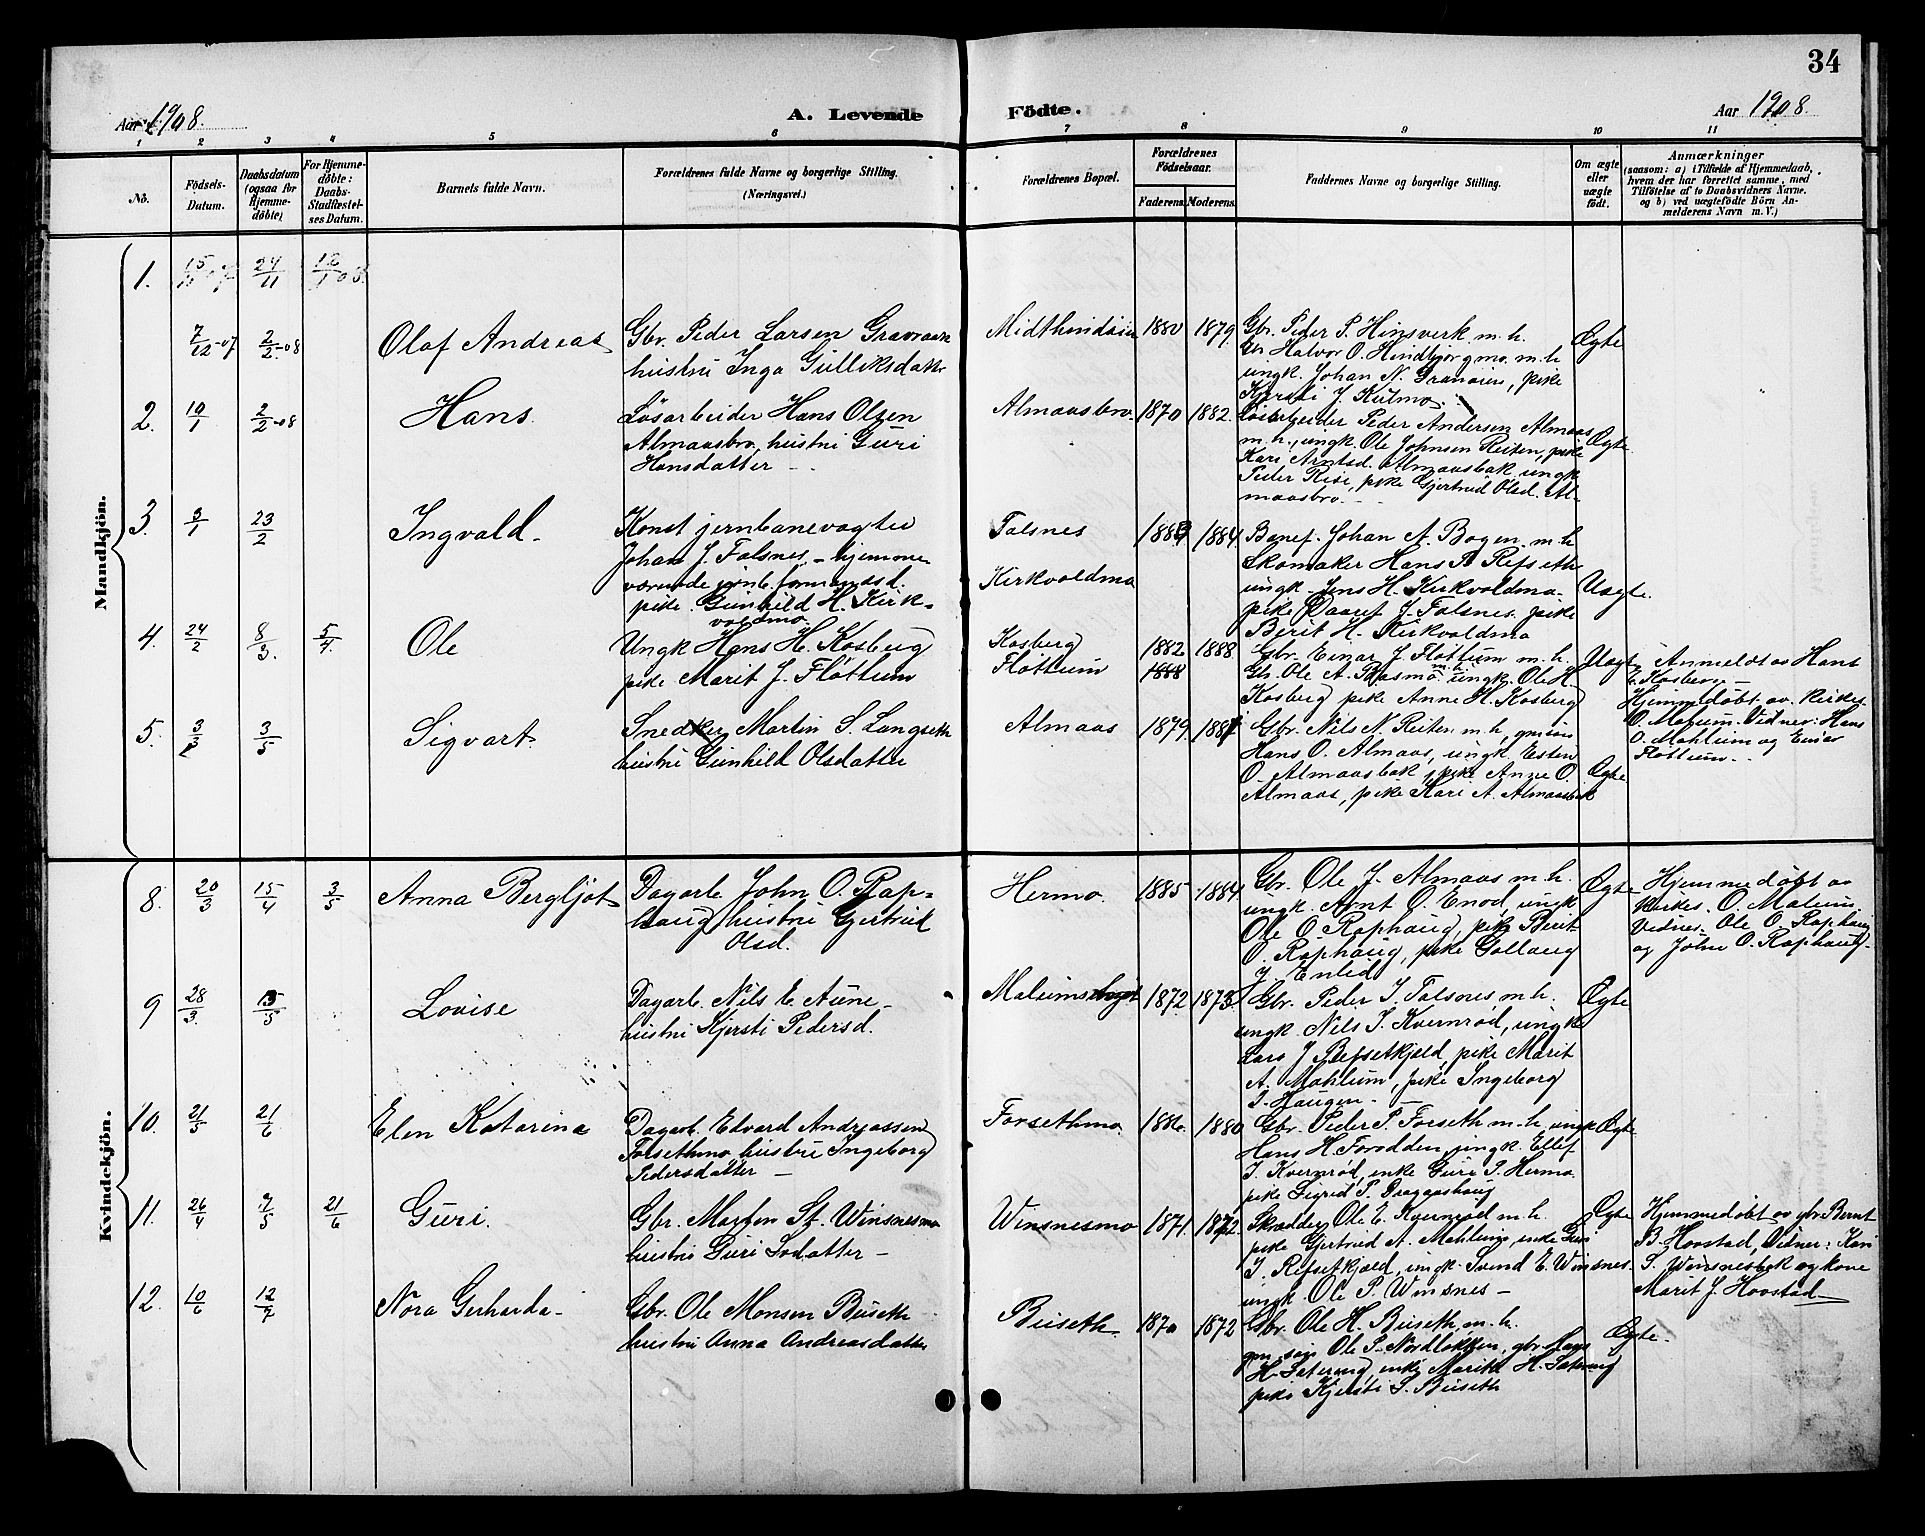 34
Aar 1908.
A. Levende
Födte.
Aar 1908.
1 2 3 4 5 6 7 8 9 10 11
No.
Födsels-
Datum.
Daabsdatum
(ogsaa for
Hjemme-
döbte)
For Hjemme-
döbte:
Daabs-
Stadfæstel-
ses Datum.
Barnets fulde Navn.
Forældrenes fulde Navne og borgerlige Stilling.
(Næringsvei.)
Forældrenes Bopæl.
Forældrenes
Födselsaar.
Faderens. Moderens.
Faddernes Navne og borgerlige Stilling.
Om ægte
eller
uægte
født.
Anmærkninger
(saasom: a) i Tilfælde af Hjemmedaab,
hvem der har forrettet samme, med
Tilföielse af to Daabsvidners Navne.
og b) ved uægtefödte Börn An-
melderens Navn m. V.)
Mandkjön.
1. 24/11 12/1 08.
7/12-07 2/2-08
Olaf Andreas
Gbr. Peder Larsen Gravraak
hustru Inga Gulliksdatter
1880 1879
Gbr. Peder P. Hinsverk m. h.
Gbr Halvor O. Hindbjørgmo. m. h
ungk. Johan N. Granøien, pike
Kjersti J. Kulmo
Ægte
2. 19/1 2/2-08
Hans.
Løsarbeider Hans Olsen
Almaasbro, hustru Guri
Hansdatter -
Almaasbro. 1870 1882.
Løsarbeider Peder Andersen Almaas
m. h., ungk. Ole Johnsen Reiten, pike
Kari Arntsd. Almaasbak, ungk
Peder Risi, pike Gjertrud Olsd. Al-
maasbro. -
Ægte.
3. 3/1 23/2
Ingvald.
Konst jernbanevogter
Johan J. Talsnes, - hjemme
værende jernb. formandsd.
pike. Gunhild H. Kirk-
voldmo.
Talsnes
Kirkvoldmo
1883 1884
Banef. Johan A. Bogen m. h
Skomaker Hans A Refseth
ungk. Jens H. Kirkvoldmo.
pike Maaret J. Talsnes, pike
Berit H. Kirkvoldmo
Uægte.
4. 24/2 8/3. 5/4
Ole
Ungk Hans H. Kosberg
pike Marit J. Fløttum
Kosberg
Fløttum
1882 1888
1888
Gbr. Einar J. Fløttum m. h.
Gbr. Ole A. Moesmo m. h. ungk. Ole H.
Kosberg pike Anne H. Kosberg
Uægte
Anmeldt av Hans
H. Kosberg -
Hjemmedøbt av kirkes.
O. Malum. Vidner: Hans
O. Mahlum og Einar
Fløttum. -
5. 3/3 3/5
Sigvart.
Snedker Martin S. Langseth
hustru Gunhild Olsdatter
Almaas 1879. 1881
Gbr. Nils N. Reiten m. h, gm.
Hans O. Almaas, ungk. Esten
O. Almaasbak, pike Anne O.
Almaas, pike Kari A. Almaasbak
Ægte
Kvindekjön.
8. 20/3 15/4 3/5
Anna Bergljot
Dagarb. John O. Rap-
haug hustru Gjertrud
Olsd.
Hermo. 1885 1884
Gbr. Ole J. Almaas m. h.
ungk. Arnt O. Enod, ungk
Ole O Raphaug, pike Berit
O. Raphaug, pike Gollaug
J. Enlid
Ægte
Hjemmedøbt av
kirkes. O. Malum
Vidner. Ole O. Raphaug
og John O. Raphaug.
9 28/3. 15/5
Lovise
Dagarb. Nils E. Aune -
hustru Kjersti Pedersd.
1872 1873
Gbr. Peder I. Talsnes m. h.
ungk. Nils I. Kvernrød, ungk
Lars J. Refsetkjeld, pike Marit
A. Mahlum, pike Ingeborg
I. Haugen. -
Ægte
10. 21/5 21/6
Elen Katarina
Dagarb. Edvard Andreassen
Forsethmo hustru Ingeborg
Pedersdatter -
Forsethmo. 1886. 1880
Gbr. Peder P. Forseth m. h. ungk
Hans H. Forodden, ungk. Ellef
I. Kvernrød, enke Guri P. Hermo.
pike Sigrid P. Draggashaug
Ægte
11. 26/4 7/5 21/6
Guri.
Gbr. Morten St. Winsnesmo
hustru Guri Ivdatter -
Winsnesmo 1871. 1872.
Skrædder Ole E. Kvernrød m. h.
pike Gjertrud A. Mahlum, enke Guri
I. Refsetkjeld, ungk. Svend E. Winsnes.
ungk. Ole P. Winsnes -
Ægte
Hjemmedøbt av gbr. Bernt
B. Hovstad, Vidner: Kari
S. Winsnesbak og kone
Marit J. Hovstad -
12. 10/6 12/7
Nora Gerharda -
Gbr. Ole Monsen Buseth
hustru Anna Andreasdatter
Buseth. 1870 1872
Gbr. Ole H. Buseth, m. h.
Ole P. Nordløkken, gbr. Mons
H. Sæterng, enke Marit H. Sæterng
pike Kjersti S. Buseth
Ægte.